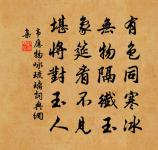 有色同寒冰
無物隔纖塵
象筵看不見
堪將對玉人
韋應物詠琉璃詞典網
集